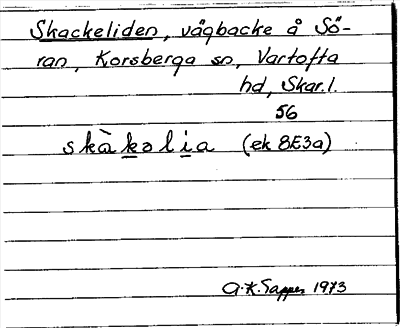 Skackeliden, vägbacke å Sö-
ran, Korsberga sn, Vartofta
hd, Skar. l.
56
skàkəlia (ek 8E3a)
A. K. Sapper 1973